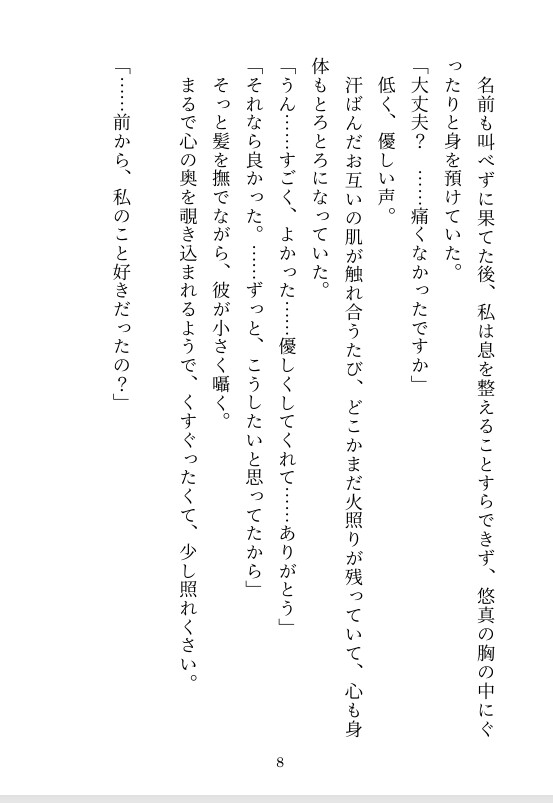 名前も叫べずに果てた後、私は息を整えることすらできず、悠真の胸の中にぐ
ったりと身を預けていた。
「大丈夫？　……痛くなかったですか」
　低く、優しい声。
　汗ばんだお互いの肌が触れ合うたび、どこかまだ火照りが残っていて、心も身
体もとろとろになっていた。
「うん……すごく、よかった……優しくしてくれて……ありがとう」
「それなら良かった。……ずっと、こうしたいと思ってたから」
　そっと髪を撫でながら、彼が小さく囁く。
　まるで心の奥を覗き込まれるようで、くすぐったくて、少し照れくさい。
「……前から、私のこと好きだったの？」
8